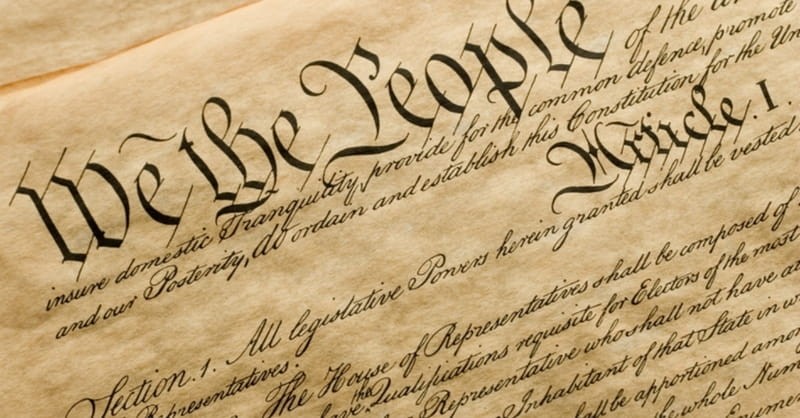 We the People of the
insure domestic Tranquility, provide for the common defence, promote
and our Posterity, do ordain and establish this Constitution for the Un
Article. I.
Section. 1. All legislative Powers herein granted shall be vested
Representatives.
The House of Representatives shall be composed of
have the Qualifications requisite for Electors of the most
Representative who shall not have at
Inhabitant of that State in w
shall be apportioned amon
the whole Num